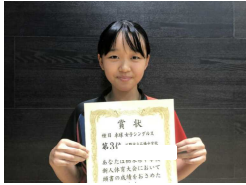 賞状
種目 卓球女子シングルス
第3位
あなたは
新人体育大会において
頭書の成績をおさめた